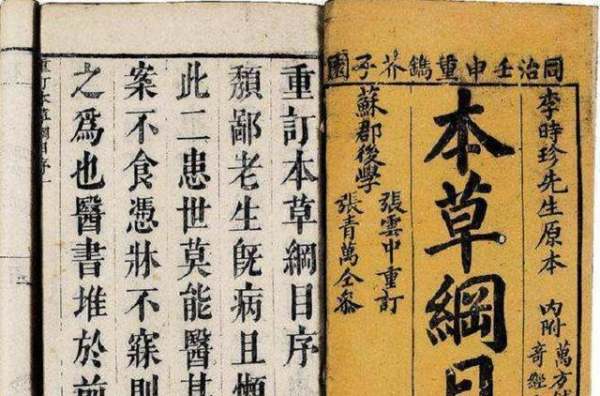 同治壬申重鐫芥子園
李時珍先生原本
內附
萬方
奇經
本草綱目
蘇郡後學
張雲中重訂
張青萬仝參
重訂本草綱目序
頽鄙老生旣病且懶
此二患世莫能醫其
案不食憑牀不寐則
之爲也醫書堆於前
重訂本草綱目序